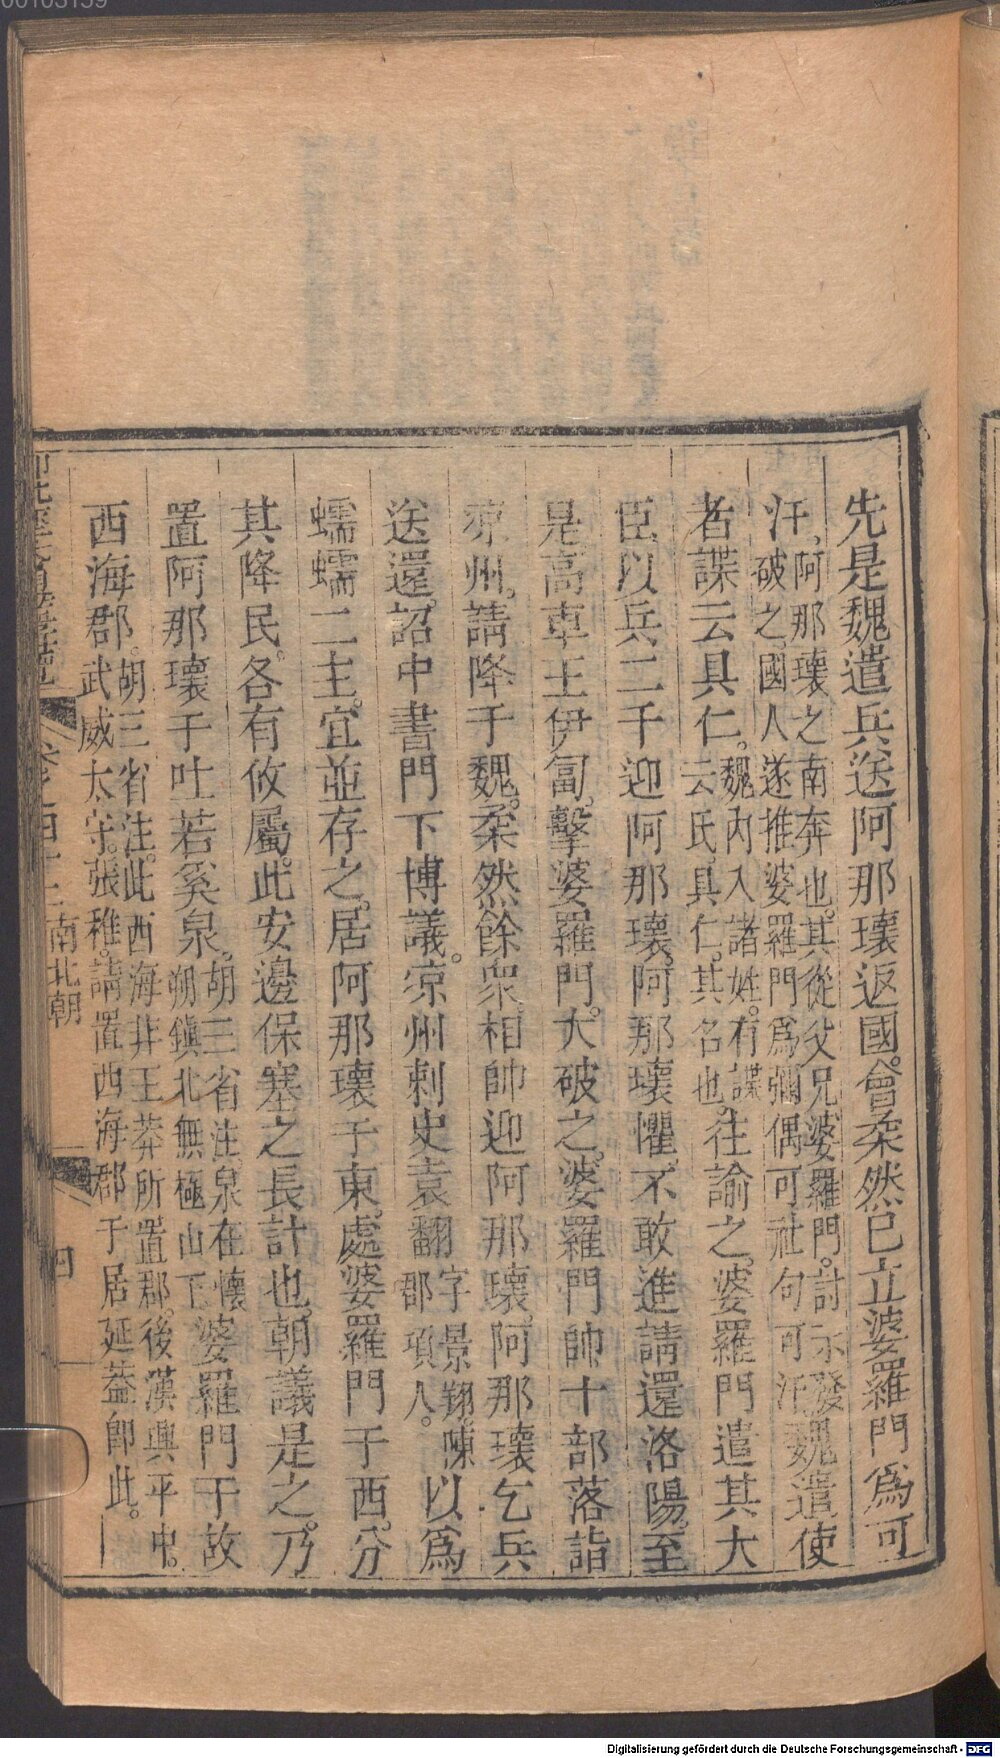 先是魏遣兵送阿那瓌返國。會柔然已立婆羅門爲可
汗，阿那瓌之南奔也。其從父兄婆羅門。討示發
破之。國人遂推婆羅門爲彌偶可社句可汗魏遣使
者諜云具仁。魏內入諸姓。有諜
云氏。具仁。其名也。往諭之。婆羅門遣其大
臣以兵二千迎阿那瓌。阿那瓌懼。不敢進請還洛陽。至
是高車王伊匐。擊婆羅門。大破之。婆羅門帥十部落詣
凉州。請降于魏。柔然餘衆。相帥迎阿那瓌。阿那瓌乞兵
送還。詔中書門下博議。凉州刺史袁翻字景翔。陳
郡項人。以爲
蠕蠕二主。宜並存之。居阿那瓌于東。處婆羅門于西。分
其降民。各有攸屬。此安邊保塞之長計也。朝議是之。乃
置阿那瓌于吐若奚泉。胡三省注。泉在懷
朔鎭北無極山下婆羅門于故
西海郡。胡三省注。此西海非王莽所置郡。後漢興平中。
武威太守。張稚。請置西海郡于居延葢卽此。
南北朝
四
Digitalisierung gefördert durch die Deutsche Forschungsgemeinschaft - DFG